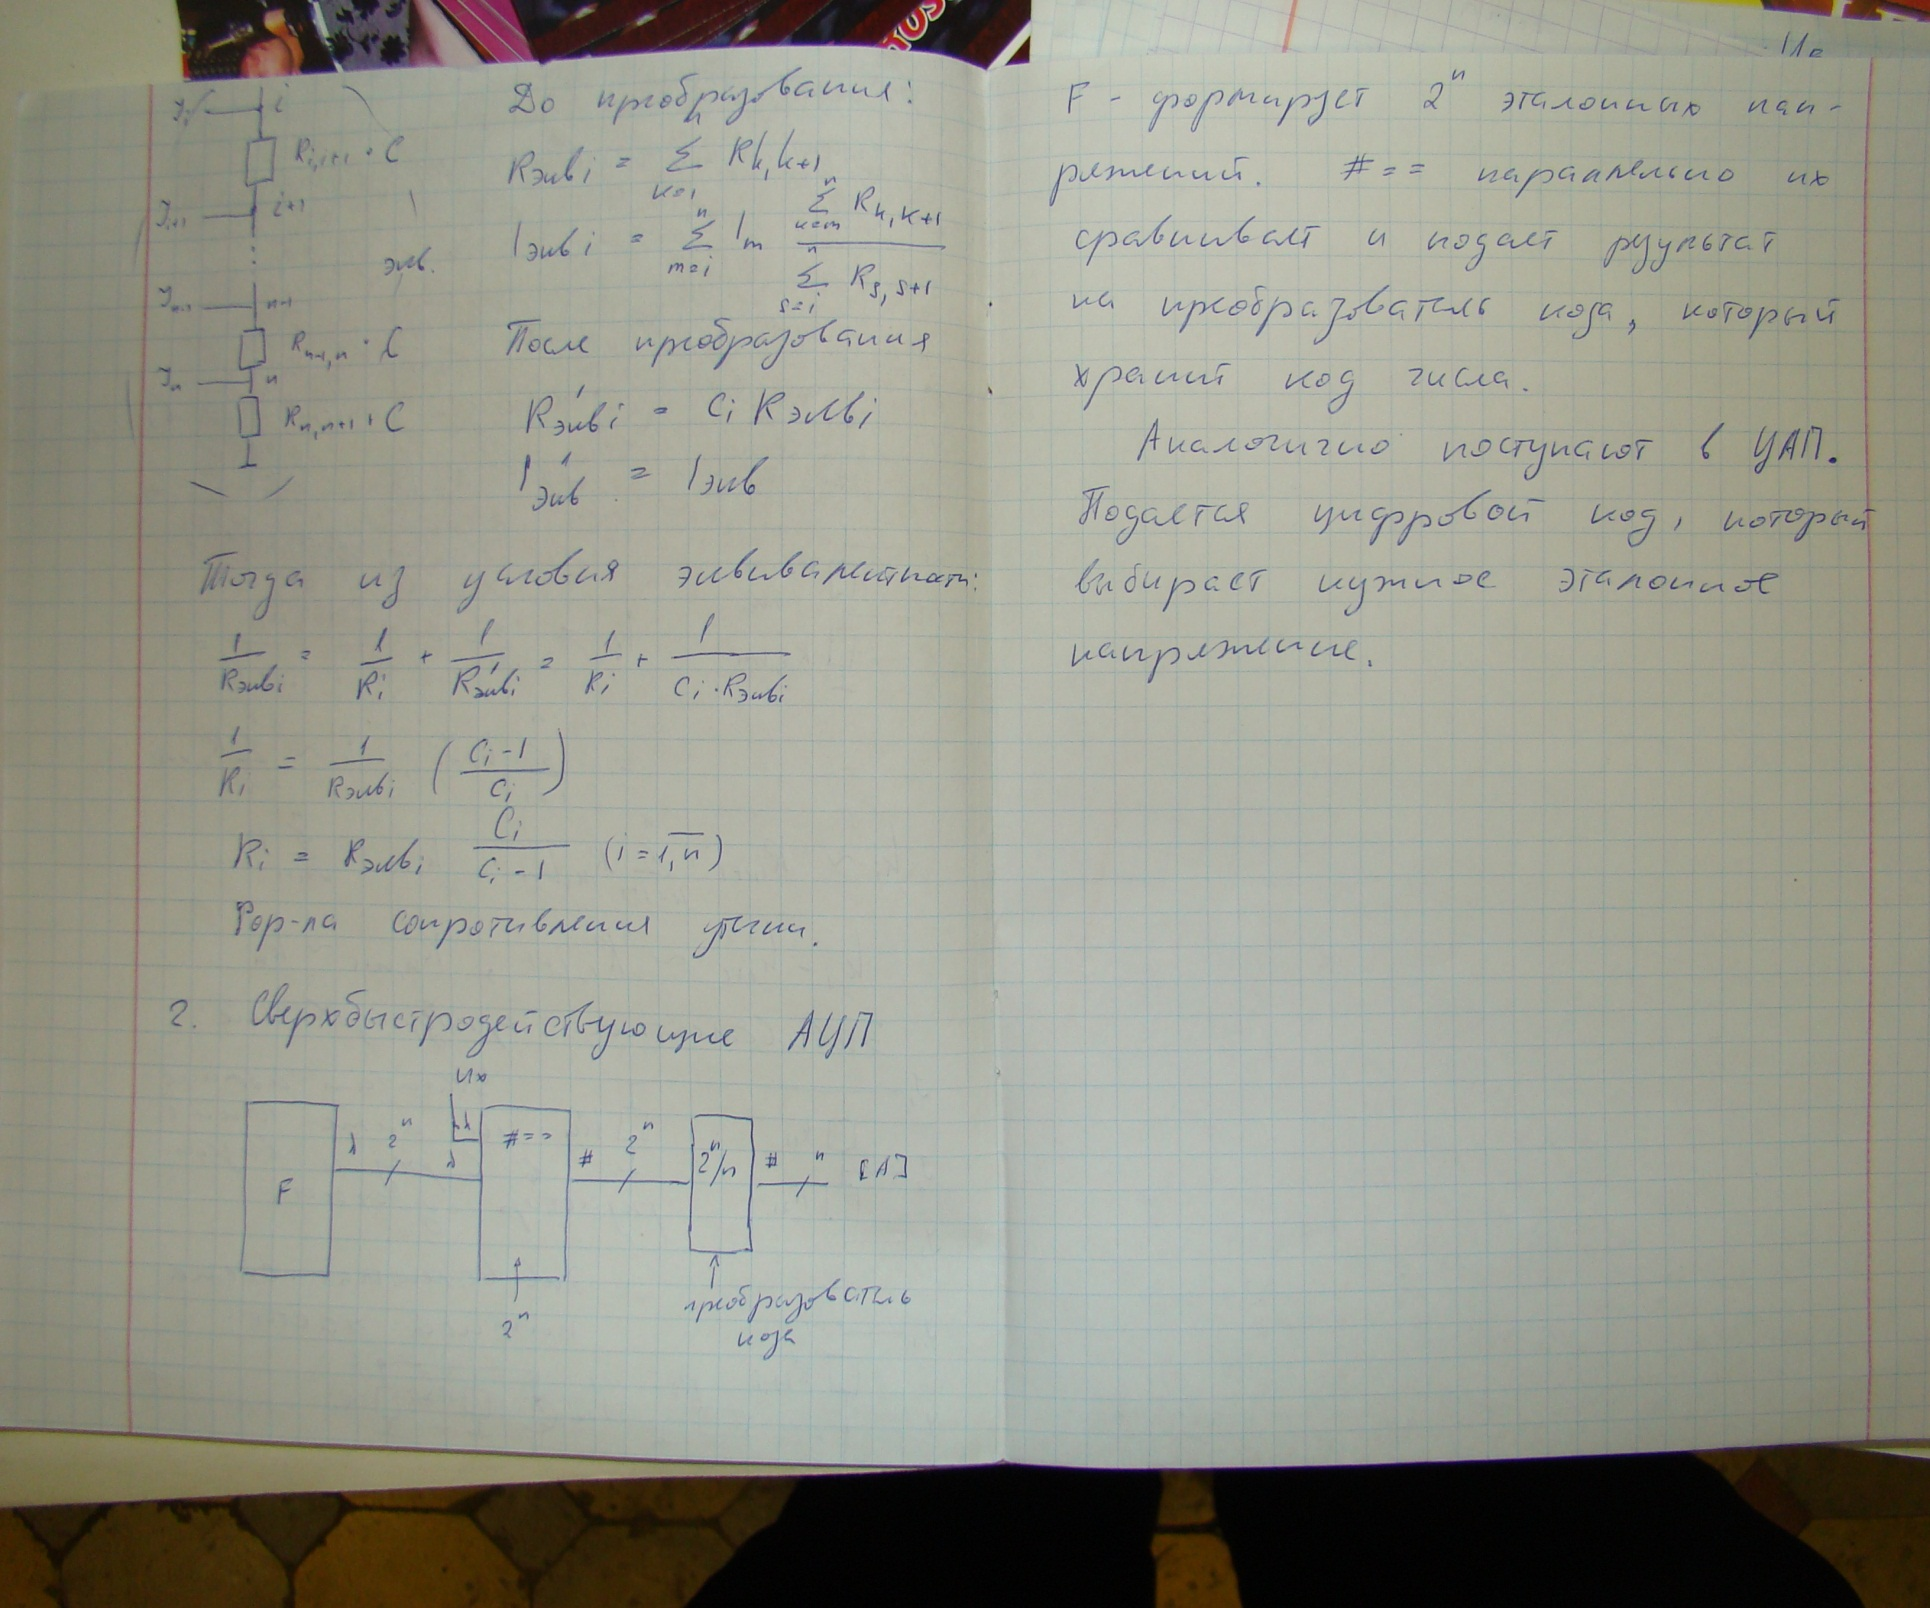 До преобразования:
i
R i,i+1 · C
R экв i = n Σ k=1 R k,k+1
i+1
I экв i = n Σ m=i I m n Σ k=m R k,k+1 / n Σ s=i R s,s+1
экв.
n-1
R n-1,n · C
n
R n,n+1 · C
После преобразования
R' экв i = C i R экв i
I' экв = I экв
Тогда из условия эквивалентности:
1/R экв i = 1/R i + 1/R' экв i = 1/R i + 1/(C i · R экв i)
1/R i = 1/R экв i ( (C i - 1)/C i )
R i = R экв i C i/(C i - 1) (i = 1,n)
Фор-ла сопротивления утечки.
2. Сверхбыстродействующие АЦП
Ux
F
2^n
#==
# 2^n
2^n/n
# n
[A]
2^n
преобразователь
кода
F - формирует 2^n эталонных нап-
ряжений. #== параллельно их
сравнивает и подает результат
на преобразователь кода, который
хранит код числа.
Аналогично поступают в ЦАП.
Подается цифровой код, который
выбирает нужное эталонное
напряжение.